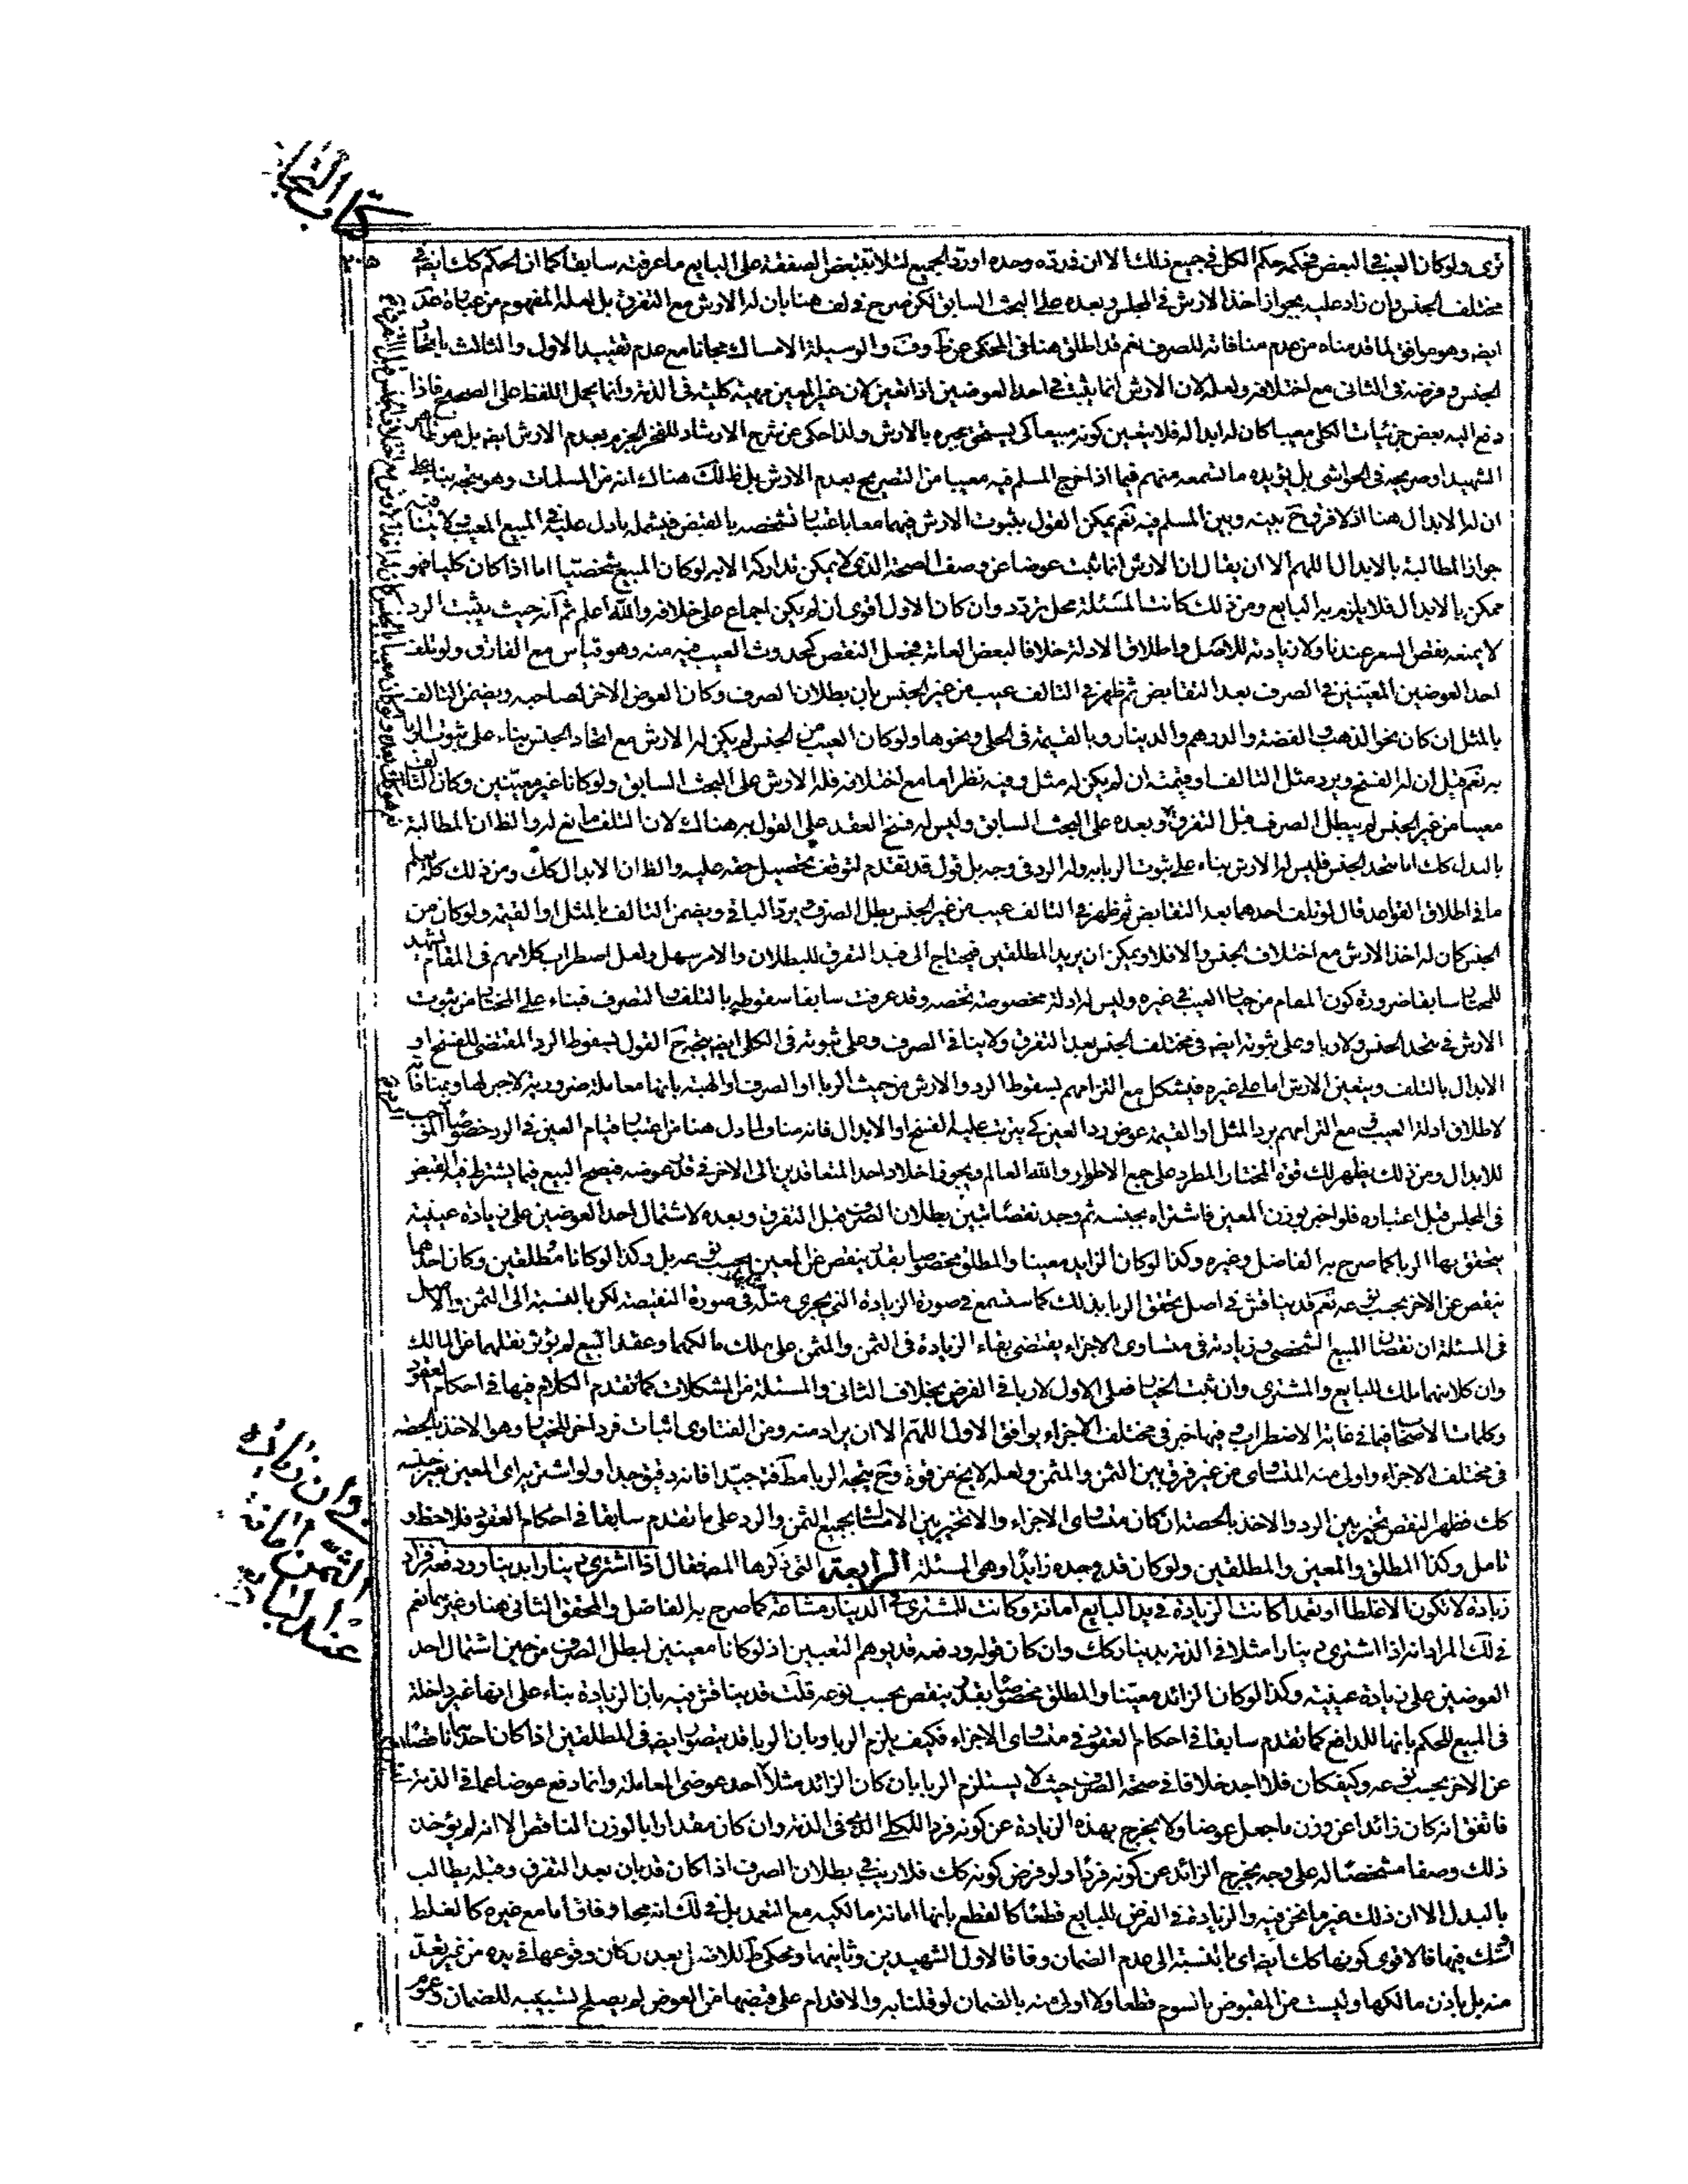 كتاب التجارة
ترى ولو كان العيب في البعض فحكمه حكم الكل في جميع ذلك الا ان في رده وحده او رد الجميع لئلا يتبعض الصفقة على البايع ما عرفته سابقا كما ان الحكم كك ايضا في
مختلف الجنس وان زاد عليه بجواز اخذ الارش في المجلس وبعده على البحث السابق لكن صرح في لف هنا بان له الارش مع التفرق بل لعله المفهوم من عبارة عد
ايضه وهو موافق لما قدمناه من عدم منافاته للصرف نعم قد اطلق هنا في المحكى عن ط وف والوسيلة الامساك مجانا مع عدم تقييد الاول والثالث باتحاد
الجنس وفرضه في الثانى مع اختلافه ولعله لان الارش انما يثبت في احد العوضين اذا تعين لان غير المعين مهية كلية في الذمة وانما يحمل اللفظ على الصحيح فاذا
دفع اليه بعض جزئيات الكلى معيبا كان له ابداله فلا يتعين كونه مبيعا كى يستحق جبره بالارش ولذا حكى عن شرح الارشاد للفخر الجزم بعدم الارش ايضه بل هو ظاهر
الشهيد او صريحه في الحواشى بل يؤيده ما لتسمعه منهم فيما اذا خرج المسلم فيه معيبا من التصريح بعدم الارش بل ظ لك هناك انه من المسلمات وهو متجه بناء على
ان له الابدال هنا اذ لا فرق ح بينه وبين المسلم فيه نعم يمكن القول بثبوت الارش فيهما معا باعتبار تشخصه بالقبض فيشمله ما دل عليه في المبيع المعيب ولا ينافيه
جواز المطالبة بالابدال اللهم الا ان يقال ان الارش انما يثبت عوضا عن وصف الصحة الذى لا يمكن تداركه الا به لو كان المبيع شخصيا اما اذا كان كليا فهو
ممكن بالابدال فلا يلزم به البايع ومن ذلك كانت المسئلة محل تردد وان كان الاول اقوى ان لم يكن اجماع على خلافه والله اعلم ثم انه حيث يثبت الرد
لا يمنعه نقص السعر عندنا ولا زيادته للاصل واطلاق الادلة خلافا لبعض العامة فجعل النقص كحدوث العيب فيه منه وهو قياس مع الفارق ولو تلف
احد العوضين المعينين في الصرف بعد التقابض ثم ظهر في التالف عيب من غير الجنس بان بطلان الصرف وكان العوض الاخر لصاحبه ويضمن التالف
بالمثل ان كان نحو الذهب والفضة والدرهم والدينار وبالقيمة في الحلى ونحوها ولو كان العيب من الجنس لم يكن له الارش مع اتحاد الجنس بناء على ثبوت الربا
به نعم قيل ان له الفسخ ويرد مثل التالف او قيمته ان لم يكن له مثل وفيه نظر اما مع اختلافه فله الارش على البحث السابق ولو كانا غير معينين وكان التالف
معيبا من غير الجنس لم يبطل الصرف قبل التفرق وبعده على البحث السابق وليس له فسخ العقد على القول به هناك لان التلف مانع لرد والظ ان المطالبة
بالبدل كك اما متحد الجنس فليس له الارش بناء على ثبوت الربا به وله الرد في وجه بل قول قد تقدم لتوقف تحصيل حقه عليه والظ ان الابدال كك ومن ذلك كله يعلم
ما في اطلاق القواعد قال لو تلف احدهما بعد التقابض ثم ظهر في التالف عيب من غير الجنس بطل الصرف ويرد الباقى ويضمن التالف بالمثل او القيمة ولو كان من
الجنس كان له اخذ الارش مع اختلاف الجنس والا فلا ويمكن ان يريد المطلقين فيحتاج الى قيد التفرق للبطلان والامر سهل ولعل اضطراب كلامهم في المقام يشهد
للمختار سابقا ضرورة كون المقام من جزئيات العيب في غيره وليس له ادلة مخصوصة تخصه وقد عرفت سابقا سقوطه بالتلف والتصرف فبناء على المختار من ثبوت
الارش في متحد الجنس ولا ربا وعلى ثبوته ايضه في مختلف الجنس بعد التفرق ولا ينافى الصرف وعلى ثبوته في الكلى ايضه يتجه ح القول بسقوط الرد المقتضى للفسخ او
الابدال بالتلف ويتعين الارش اما على غيره فيشكل مع التزامهم بسقوط الرد والارش من حيث الربا او الصرف او الهبة بانها معاملة ضرورية لا جبر لها وبمنافاته
لاطلاق ادلة العيب مع التزامهم برد المثل او القيمة عوض رد العين كى يترتب عليه الفسخ او الابدال فانه مناف لما دل هنا من اعتبار قيام العين في الرد خصوصا الموجب
للابدال ومن ذلك يظهر لك قوة المختار المطرد على جميع الاطوار والله العالم ويجوز اخلاد احد المتعاقدين الى الاخر في قدر عوضه فيصح البيع فيما يشترط فيه القبض
في المجلس قبل اعتباره فلو اخبر بوزن المعين فاشتراه بجنسه ثم وجد نقصانا تبين بطلان الصرف قبل التفرق وبعده لاشتمال احد العوضين على زيادة عينية
يتحقق بها الربا كما صرح به الفاضل وغيره وكذا لو كان الزايد معينا والمطلق مخصوصا بقدر ينقص عن المعين بحسب نوعه بل وكذا لو كانا مطلقين وكان احدهما
ينقص عن الاخر بحسب نوعه نعم قد يناقش في اصل تحقق الربا بذلك كما ستسمع في صورة الزيادة التى يجرى مثله في صورة النقيصة لكن بالنسبة الى الثمن والاصل
في المسئلة ان نقصان المبيع الشخصى وزيادته في متساوى الاجزاء يقتضى بقاء الزيادة في الثمن والمثمن على ملك مالكهما وعقد البيع لم يؤثر نقلهما عن المالك
وان كلا منهما ملك للبايع والمشترى وان ثبت الخيار فعلى الاول لا ربا في الفرض بخلاف الثانى والمسئلة من المشكلات كما تقدم الكلام فيها في احكام العقود
وكلمات الاصحاب فيها في غاية الاضطراب وفيها خبر في مختلف الاجزاء يوافق الاول اللهم الا ان يراد منه ومن الفتاوى اثبات فرد اخر للخيار وهو الاخذ بالحصة
في مختلف الاجزاء واولى منه المتساوى من غير فرق بين الثمن والمثمن ولعله لا يخ من قوة وح يتجه الربا مط فتدبر جيدا فانه دقيق جدا ولو اشتراى المعين بغير جنسه
كك فظهر النقص تخير بين الرد والاخذ بالحصة ان كان متساوى الاجزاء والا تخير بين الامساك بجميع الثمن والرد على ما تقدم سابقا في احكام العقود فلاحظ و
تامل وكذا المطلق والمعين والمطلقين ولو كان قد وجده زايدا وهى المسئلة الرابعة التى ذكرها المصنف قال اذا اشترى دينارا بدينار ودفعه فزاد
زيادة لا تكون الا غلطا او تعمدا كانت الزيادة في يد البايع امانة وكانت للمشترى في الدينار مشاعة كما صرح به الفاضل والمحقق الثانى هنا وغيرهما نعم
في لك المراد انه اذا اشترى دينارا مثلا في الذمة بدينار كك وان كان قوله ودفعه قد يوهم التعيين اذ لو كانا معينين لبطل الصرف من حين اشتمال احد
العوضين على زيادة عينية وكذا لو كان الزائد معينا والمطلق مخصوصا بقدر ينقص بحسب نوعه قلت قد يناقش فيه بان الزيادة بناء على انها غير داخلة
في المبيع للحكم بانها للدافع كما تقدم سابقا في احكام العقود في متساوى الاجزاء فكيف يلزم الربا وبان الربا قد يتصور ايضه في المطلقين اذا كان احدهما ناقصا
عن الاخر بحسب نوعه وكيف كان فلا اجد خلافا في صحة الصرف حيث لا يستلزم الربا بان كان الزائد مثلا احد عوضى المعاملة وانما دفع عوضا عما في الذمة
فاتفق انه كان زائدا عن وزن ما جعل عوضا ولا يخرج بهذه الزيادة عن كونه فردا للكلى الذى في الذمة وان كان مقدارا بالوزن الناقص الا انه لم يؤخذ
ذلك وصفا مشخصا له على وجه يخرج الزائد عن كونه فردا ولو فرض كونه كك فلا ريب في بطلان الصرف اذا كان قد بان بعد التفرق وقبله يطالب
بالبدل الا ان ذلك غير ما نحن فيه والزيادة في الفرض للبايع قطعا كالقطع بانها امانة مالكية مع التعمد بل في لك انه محل وفاق اما مع غيره كالغلط
او شك فيها فالاقوى كونها كك ايضه اى بالنسبة الى عدم الضمان وفاقا لاول الشهيدين وثانيهما ومحكى ط للاصل بعد ان كان وقوعها في يده من غير تعد
منه بل باذن مالكها وليست من المقبوض بالسوم قطعا ولا اولى منه بالضمان لو قلنا به والاقدام على قبضها من العوض لم يصلح لتسبيبه للضمان وعموم
في ان زيادة
الثمن امانة
عند البايع